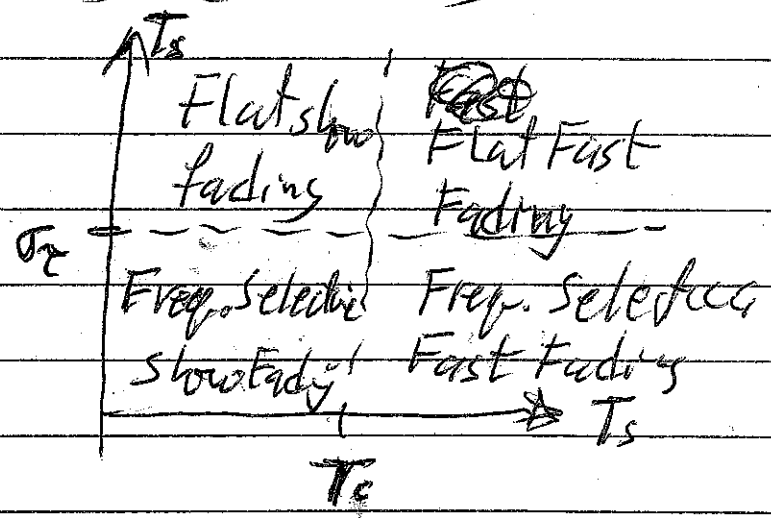 Ts
Flat slow
fading
Flat Fast
Fading
στ
Freq. Selective
slow Fading
Freq. Selective
Fast Fading
Ts
Tc